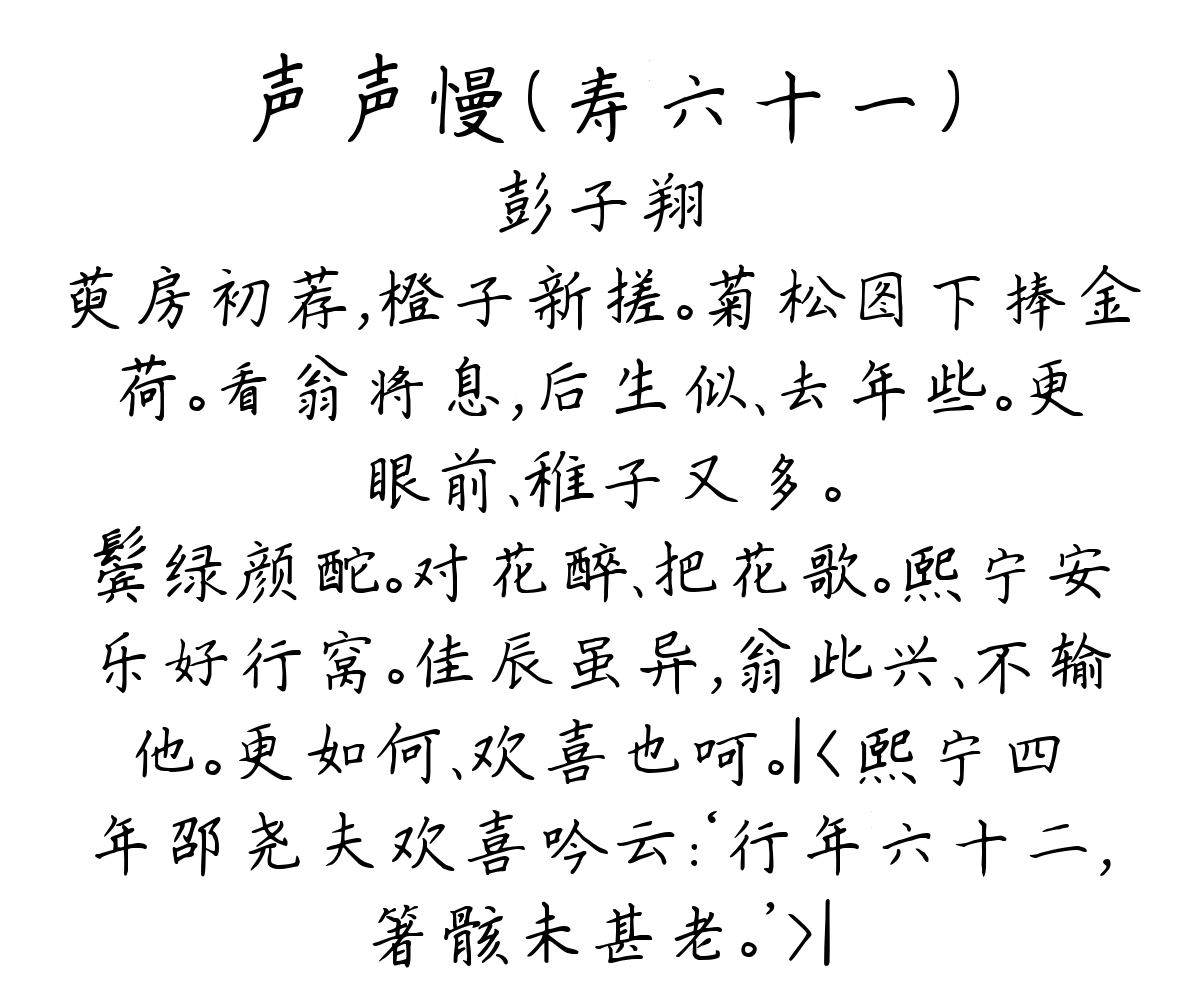 声声慢(寿六十一)
彭子翔
萸房初荐,橙子新搓。菊松图下捧金
荷。看翁将息,后生似、去年些。更
眼前、稚子又多。
鬓绿颜酡。对花醉、把花歌。熙宁安
乐好行窝。佳辰虽异,翁此兴、不输
他。更如何、欢喜也呵。|<熙宁四
年邵尧夫欢喜吟云:‘行年六十二,
箸骸未甚老。’>|